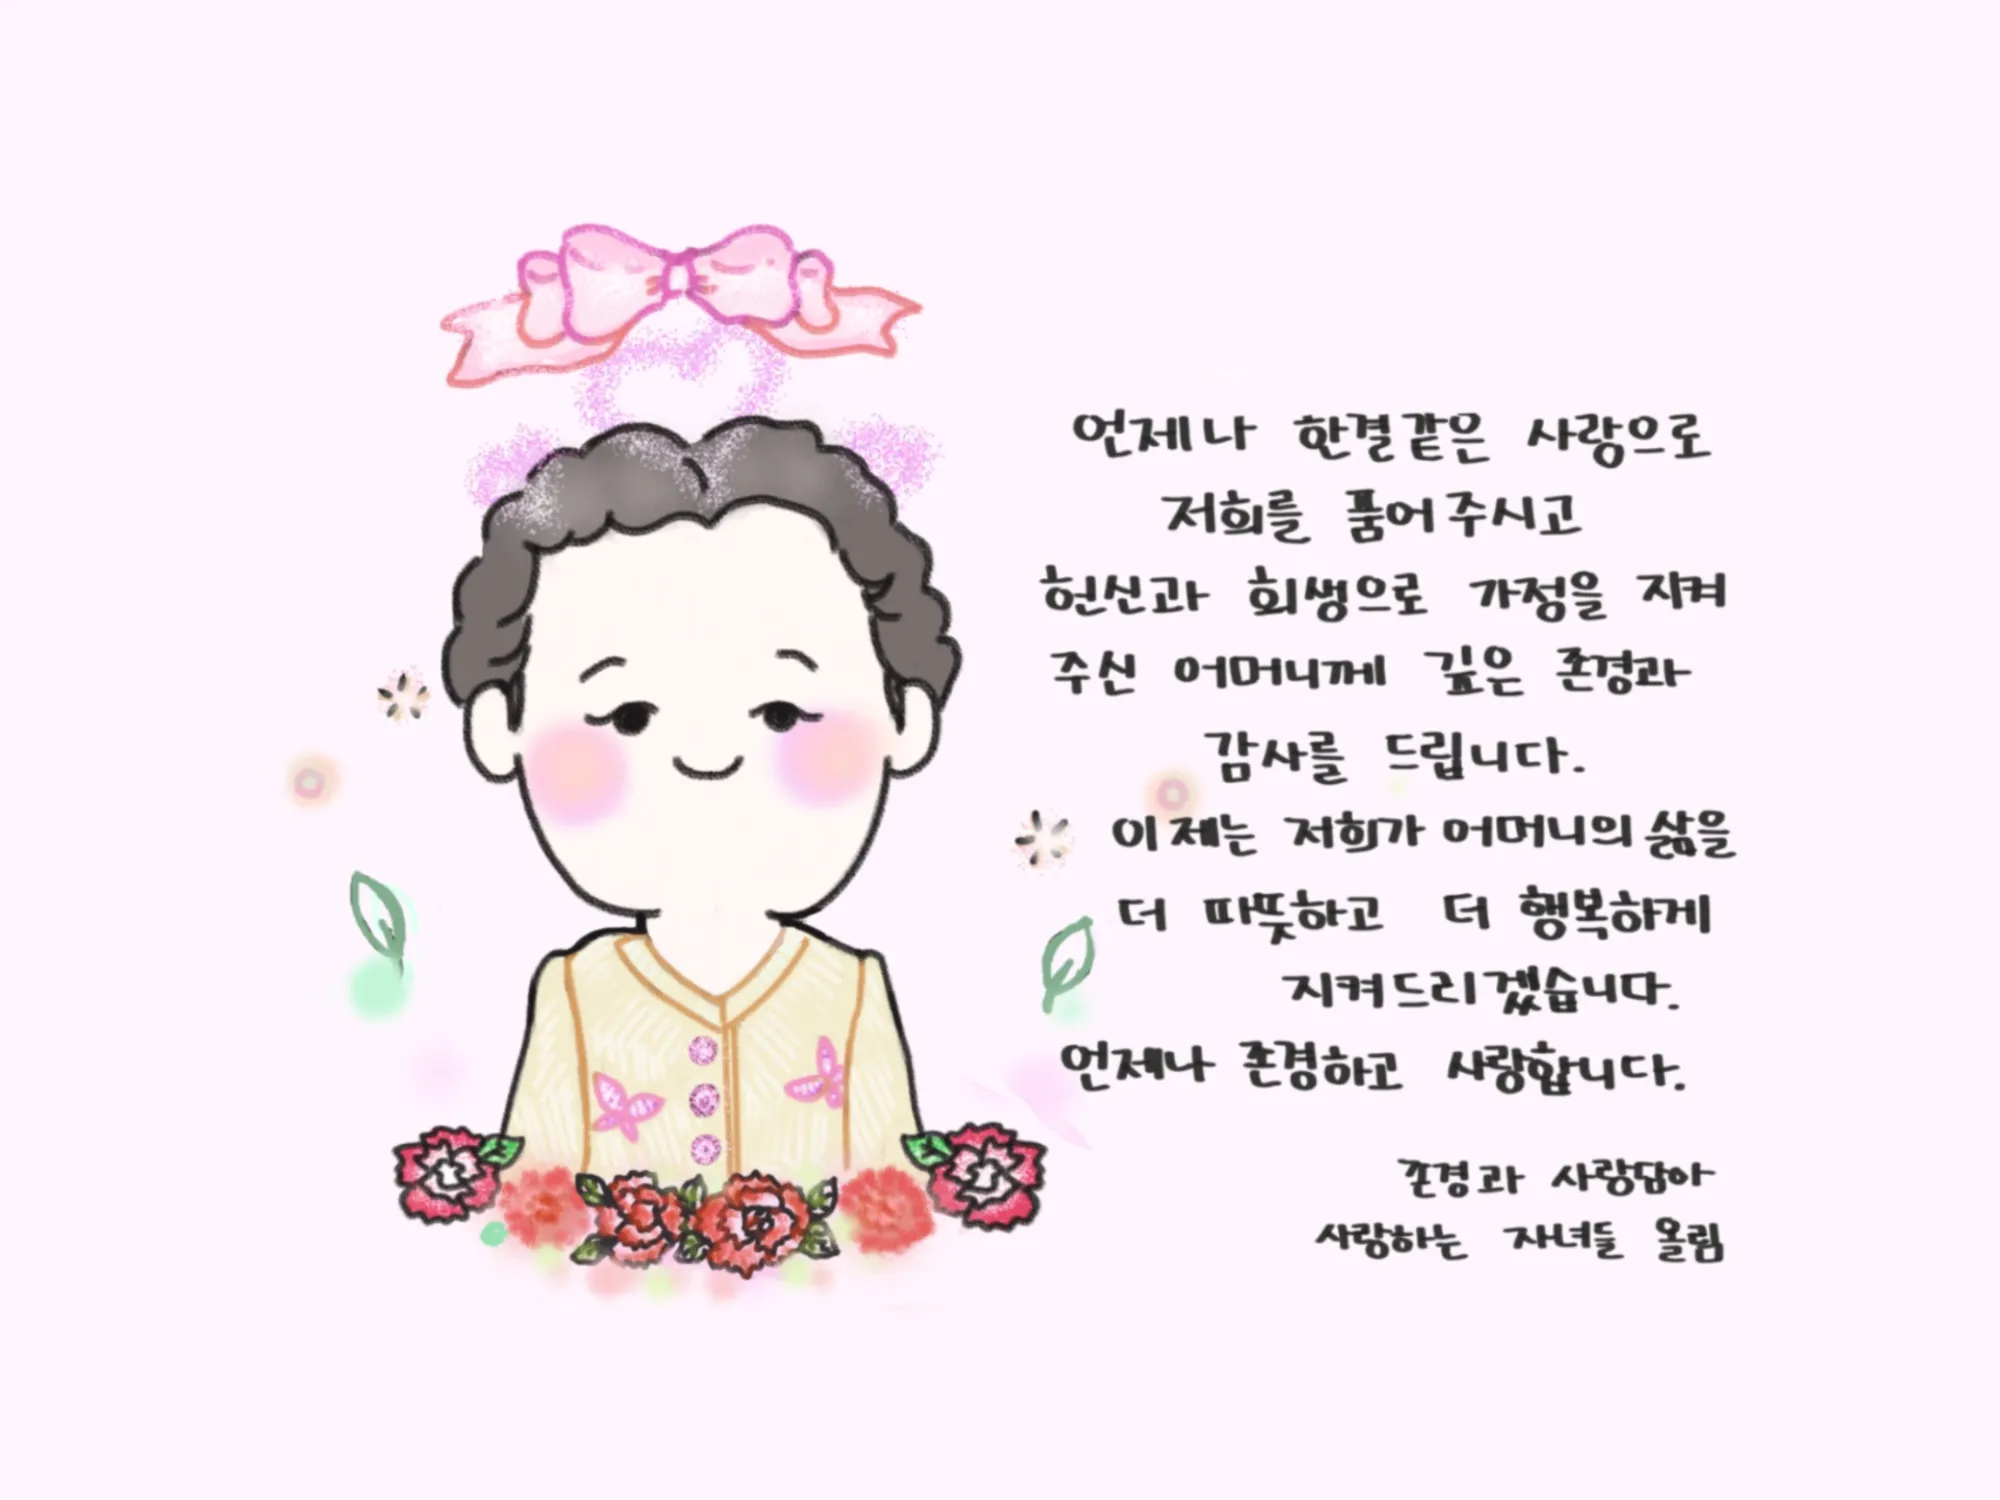 언제나 한결같은 사랑으로
저희를 품어주시고
헌신과 희생으로 가정을 지켜
주신 어머니께 깊은 존경과
감사를 드립니다.
이제는 저희가 어머니의 삶을
더 따뜻하고 더 행복하게
지켜드리겠습니다.
언제나 존경하고 사랑합니다.
존경과 사랑담아
사랑하는 자녀들 올림